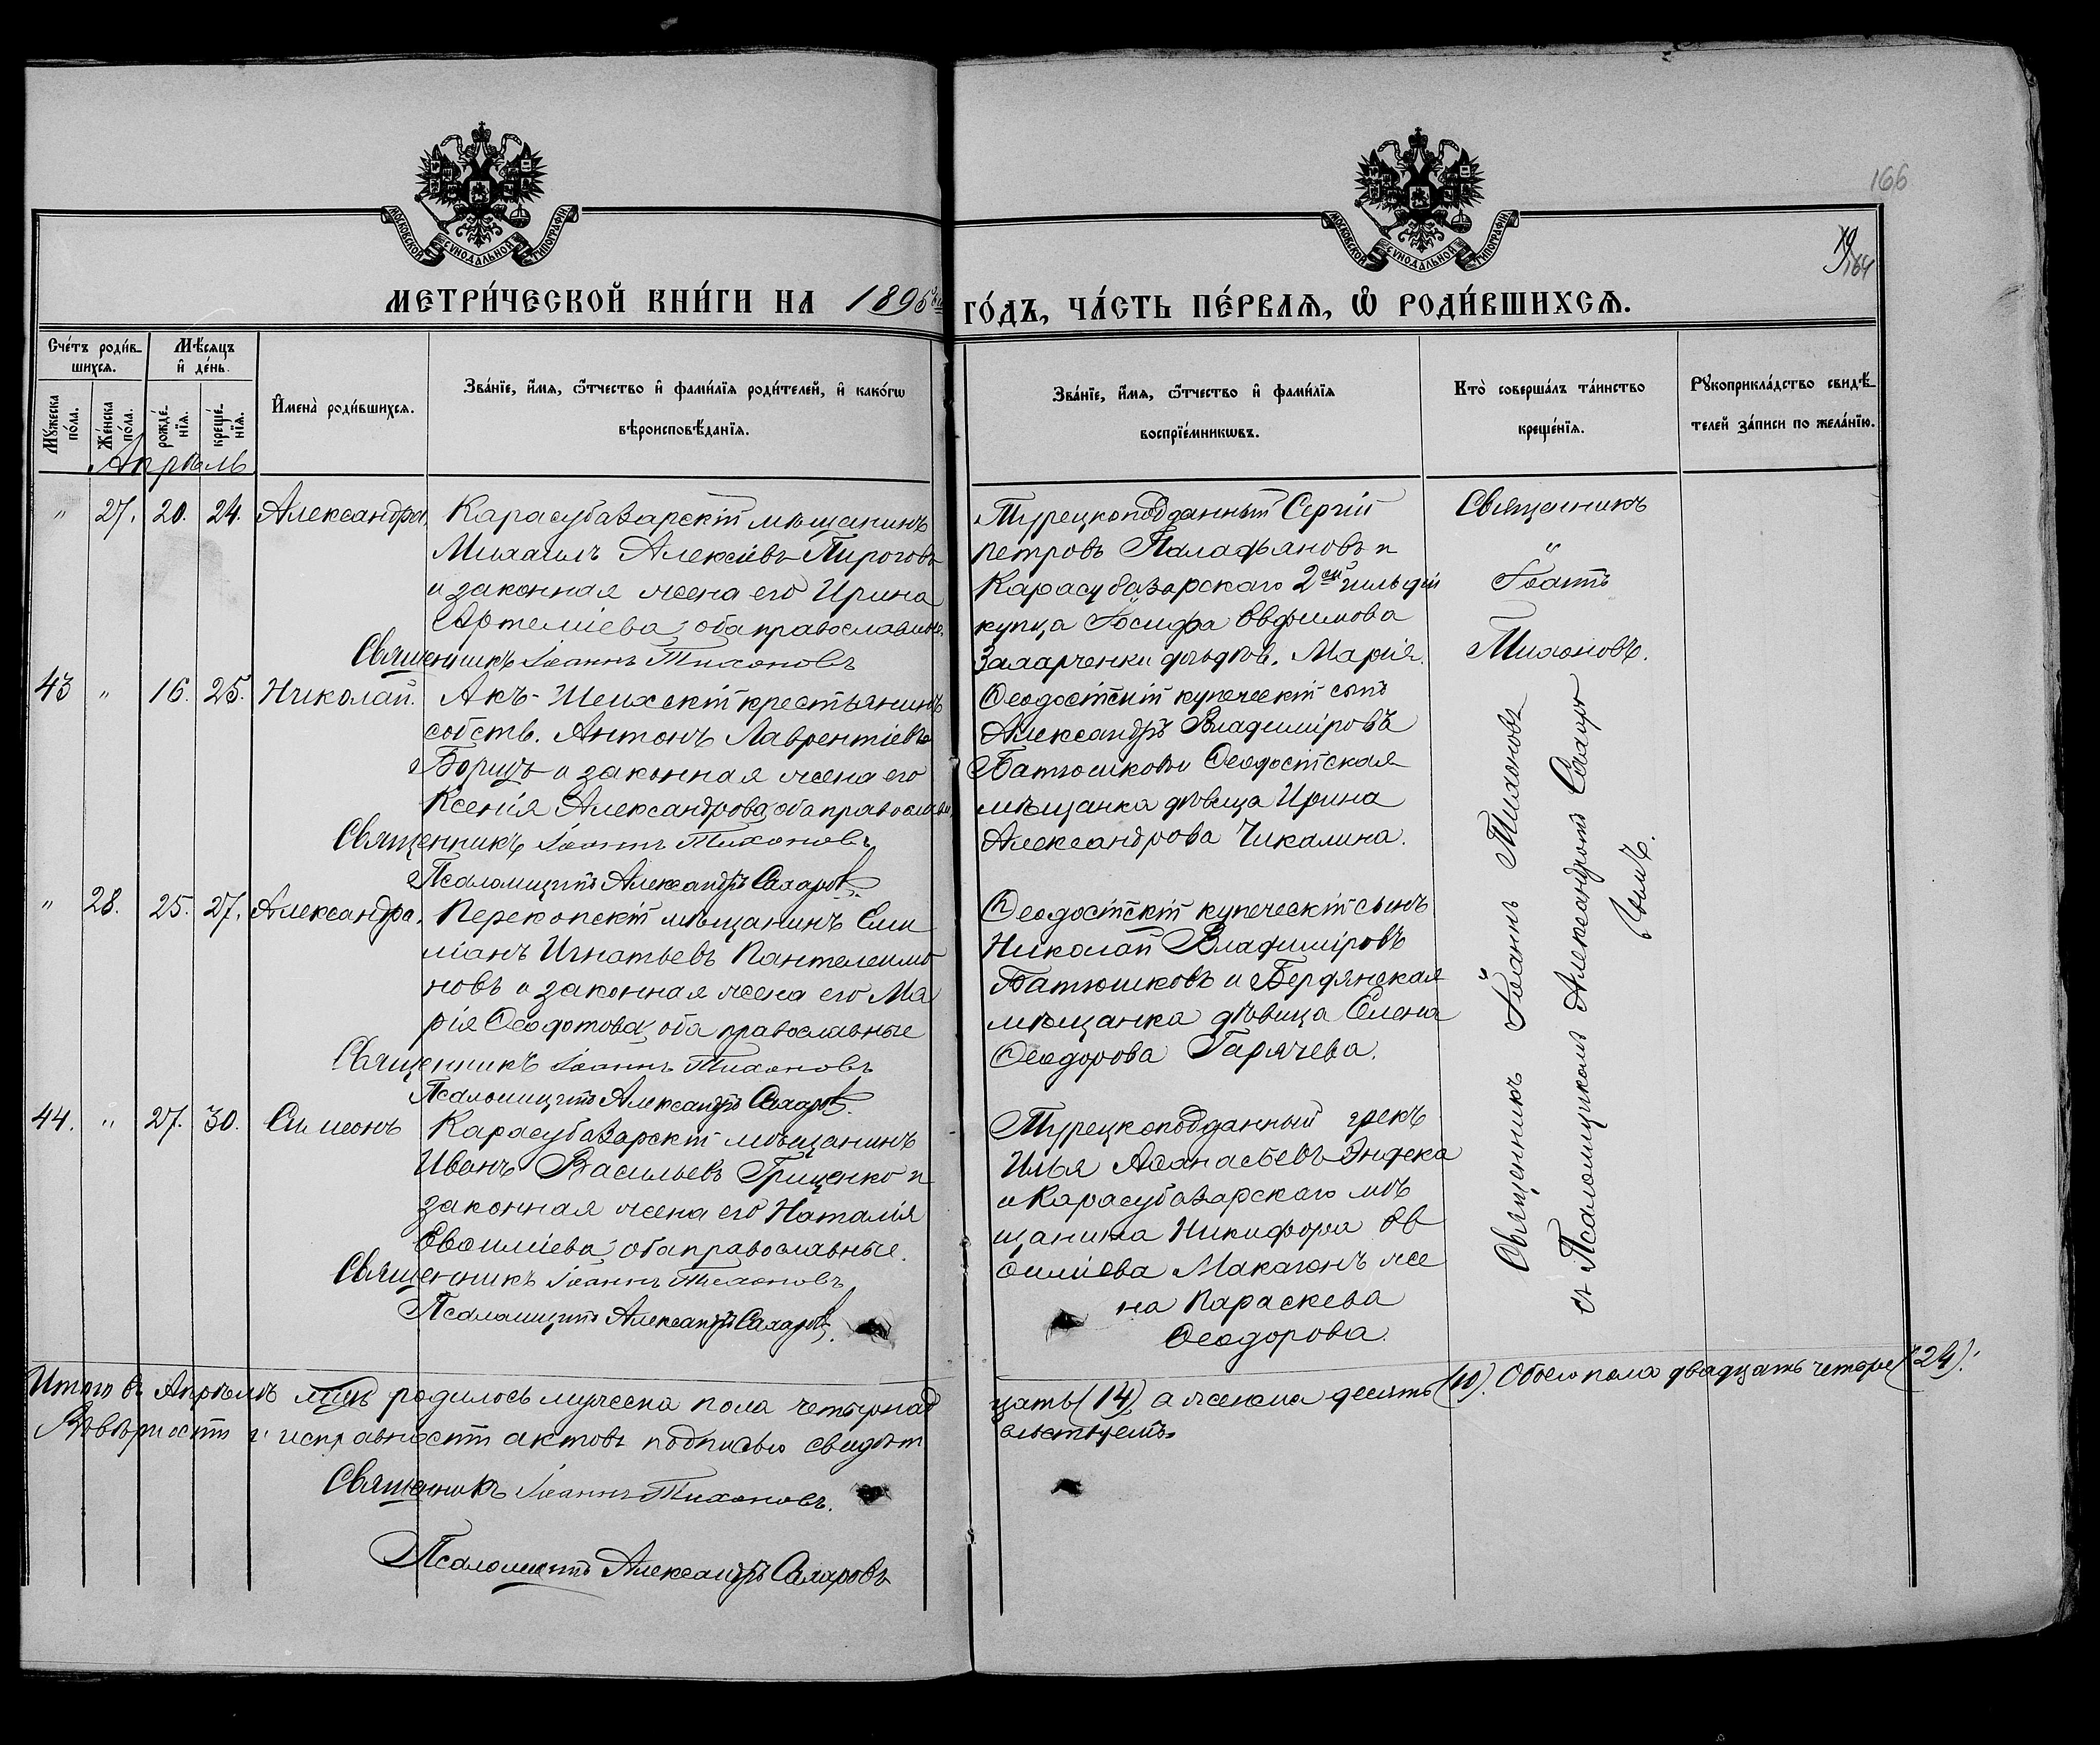 166
МОСКОВСКОЙ СѴНОДАЛЬНОЙ ТИПОГРАФІИ
МОСКОВСКОЙ СѴНОДАЛЬНОЙ ТИПОГРАФІИ
164
МЕТРИ́ЧЕСКОЙ КНИ́ГИ НА 1895
ГО́ДЪ, ЧА́СТЬ ПЕ́РВАѦ, Ѡ҆ РОДИ́ВШИХСѦ.
Сче́тъ роди́в-
шихсѧ.
Мѣ́сѧцъ
и҆ де́нь.
Мꙋ́жеска
по́ла.
Же́нска
по́ла.
рожде́-
нїѧ.
креще́-
нїѧ.
И҆мена̀ роди́вшихсѧ.
Зва́нїе, и҆́мѧ, ѻ҆́тчество и҆ фами́лїѧ роди́телей, и҆ како́гѡ
вѣроисповѣ́данїѧ.
Зва́нїе, и҆́мѧ, ѻ҆́тчество и҆ фами́лїѧ
воспрїе́мникѡвъ.
Кто̀ соверша́лъ та́инство
креще́нїѧ.
Рꙋкоприкла́дство свидѣ́-
телей за́писи по жела́нїю.
Апрѣль
" 27. 20. 24. Александра. Карасубазарскій мѣщанинъ
Михаилъ Алексіевъ Пироговъ
и законная жена его Ирина
Артеміева, оба православные.
Священникъ Іоаннъ Тихоновъ
Турецкоподданный Сергій
Петровъ Паладьяновъ и
Карасубазарскаго 2ой гильдіи
купца Іосифа Евфимова
Захарченки дочь дѣв. Марія.
Священникъ
"
Іоаннъ
Тихоновъ.
43 " 16. 25. Николай. Акъ-Шеихскій крестьянинъ
собств. Антонъ Лаврентіевъ
Борицъ и законная жена его
Ксенія Александрова, оба православн.
Священникъ Іоаннъ Тихоновъ
Псаломщикъ Александръ Сахаровъ.
Ѳеодосійскій купеческій сынъ
Александръ Владиміровъ
Батюшковъ и Ѳеодосійская
мѣщанка дѣвица Ирина
Александрова Чикалина.
" 28. 25. 27. Александра. Перекопскій мѣщанинъ Еми
ліанъ Игнатьевъ Пантелеимо
новъ и законная жена его Ма
рія Ѳеодотова, оба православные
Священникъ Іоаннъ Тихоновъ
Псаломщикъ Александръ Сахаровъ.
Ѳеодосійскій купеческій сынъ
Николай Владиміровъ
Батюшковъ и Бердянская
мѣщанка дѣвица Елена
Ѳеодорова Гарячева.
44. " 27. 30. Симеонъ Карасубазарскій мѣщанинъ
Иванъ Васильевъ Грищенко и
законная жена его Наталія
Евсиміева, оба православные.
Священникъ Іоаннъ Тихоновъ
Псаломщикъ Александръ Сахаровъ.
Турецкоподданный грекъ
Илья Аѳанасьевъ Эндека
и Карасубазарскаго мѣ
щанина Никифора Ев
симіева Макагонъ же
на Параскева
Ѳеодорова.
Священникъ Іоаннъ Тихоновъ
съ Псаломщикомъ Александромъ Сахаро
вымъ.
Итого въ Апрѣлѣ м-цѣ родилось мужеска пола четырнад
цать (14), а женска десять (10). Обоего пола двадцать четыре (24).
Въ вѣрности и исправности актовъ подписью свидѣт
ельствуемъ
Священникъ Іоаннъ Тихоновъ.
Псаломщикъ Александръ Сахаровъ